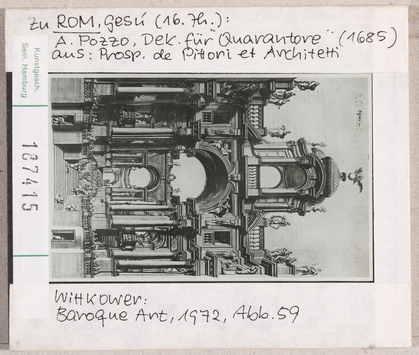 zu ROM, Gesú (16. Jh.):
A. Pozzo, Dek. für "Quarantore" (1685)
aus: Prosp. de Pittori et Architetti
Kunstgesch.
Sem. Hamburg
187415
Wittkower:
Baroque Art, 1972, Abb. 59